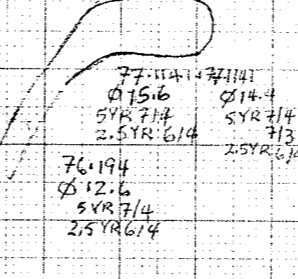 77.1141 77.1141
Ø15.6 Ø14.4
5YR 7/4 5YR 7/4
2.5YR 6/4 7/3
2.5YR 6/4
76.194
Ø12.6
5YR 7/4
2.5YR 6/4